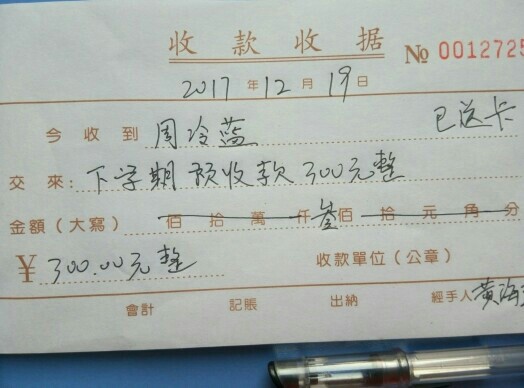 收款收据 № 0012725
2017年12月19日
已送卡
今收到 周冷蓝
交來: 下学期预收款300元整
金額(大寫) 佰拾萬仟叁佰拾元角分
¥ 300.00元整 收款單位(公章)
會計 記賬 出納 經手人 黄海